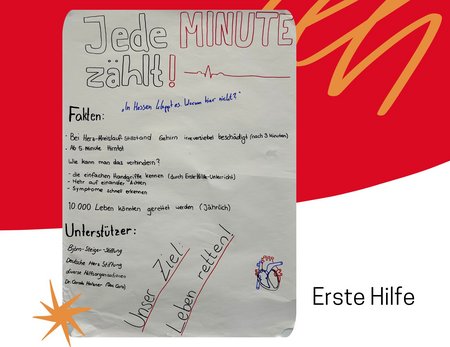 Jede MINUTE
zählt!
"In Hessen klappt es. Warum hier nicht?"
Fakten:
- Bei Herz-Kreislauf-Stillstand Gehirn irreversibel beschädigt (nach 3 Minuten)
- Ab 5. Minute Hirntot
Wie kann man das verhindern?
- die einfachen Handgriffe kennen (durch Erste Hilfe-Unterricht)
- Mehr auf einander achten
- Symptome schnell erkennen
10.000 Leben könnten gerettet werden (Jährlich)
Unterstützer:
Björn-Steiger-Stiftung
Deutsche Herz Stiftung
diverse Hilfsorganisationen
Dr. Carola
Unser Ziel:
Leben retten!
Erste Hilfe